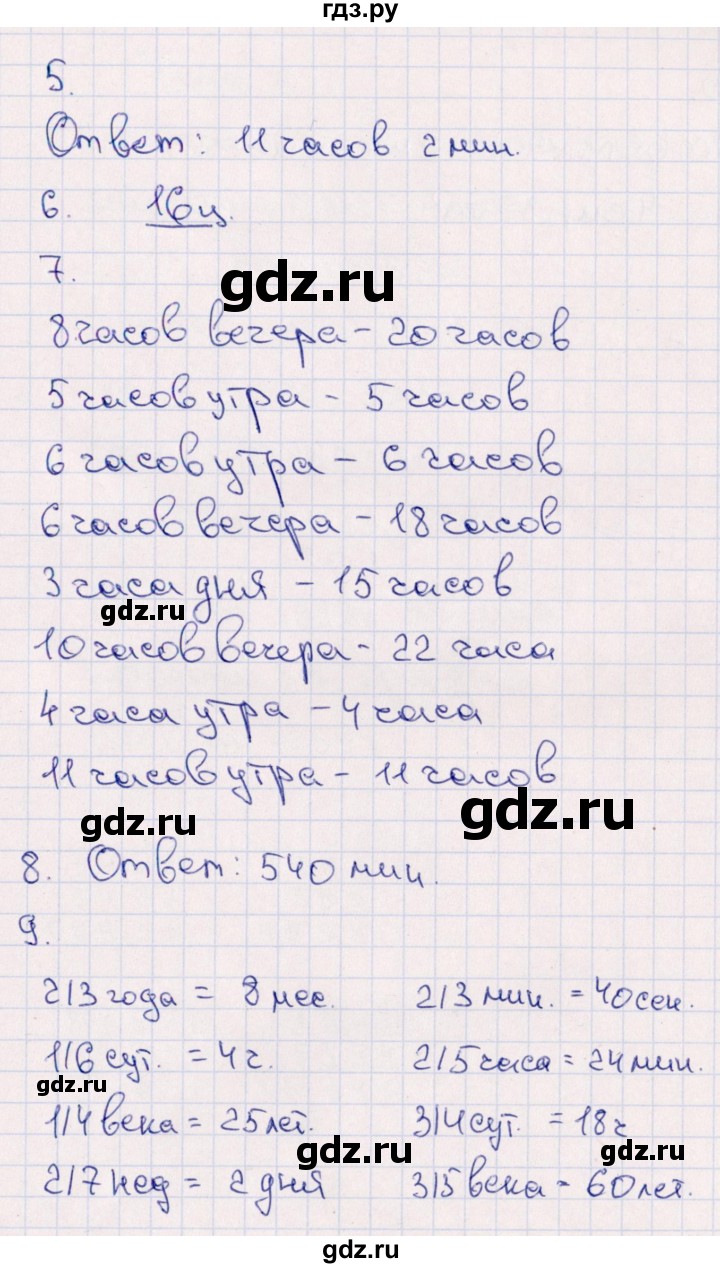 гдз.ру
5.
Ответ: 11 часов 2 мин.
6. 16 ц.
7.
gdz.ru
8 часов вечера - 20 часов
5 часов утра - 5 часов
6 часов утра - 6 часов
6 часов вечера - 18 часов
3 часа дня - 15 часов
gdz.ru
10 часов вечера - 22 часа
4 часа утра - 4 часа
11 часов утра - 11 часов
gdz.ru
gdz.ru
8. Ответ: 540 мин.
9.
2/3 года = 8 мес. 2/3 мин. = 40 сек.
1/6 сут. = 4 ч. 2/5 часа = 24 мин.
gdz.ru
1/4 века = 25 лет. 3/4 сут. = 18 ч
gdz.ru
2/7 нед = 2 дня 3/5 века = 60 лет.
gdz.ru
gdz.ru